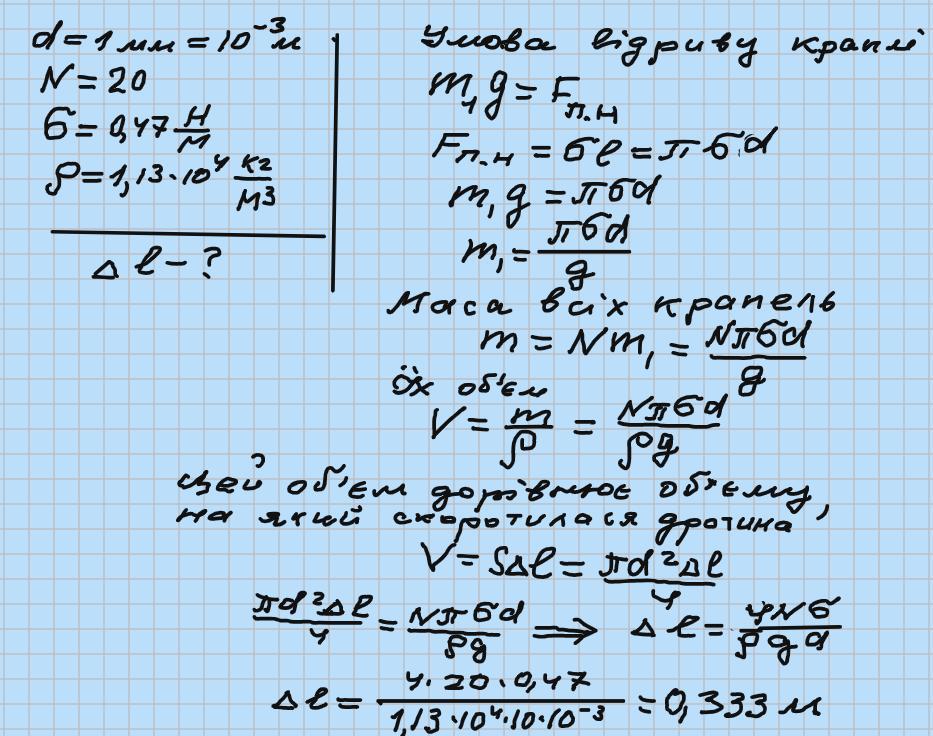 d = 1 мм = 10⁻³ м
N = 20
σ = 0,47 Н/м
ρ = 1,13·10⁴ кг/м³
Δl - ?
Умова відриву краплі
m₁g = Fп.н
Fп.н = σl = πσd
m₁g = πσd
m₁ = πσd/g
Маса всіх крапель
m = Nm₁ = Nπσd/g
Їх об'єм
V = m/ρ = Nπσd/ρg
Цей об'єм дорівнює об'єму,
на який скоротилася дротина
V = SΔl = πd²Δl/4
πd²Δl/4 = Nπσd/ρg ⟹ Δl = 4Nσ/ρgd
Δl = 4·20·0,47/1,13·10⁴·10·10⁻³ = 0,333 м